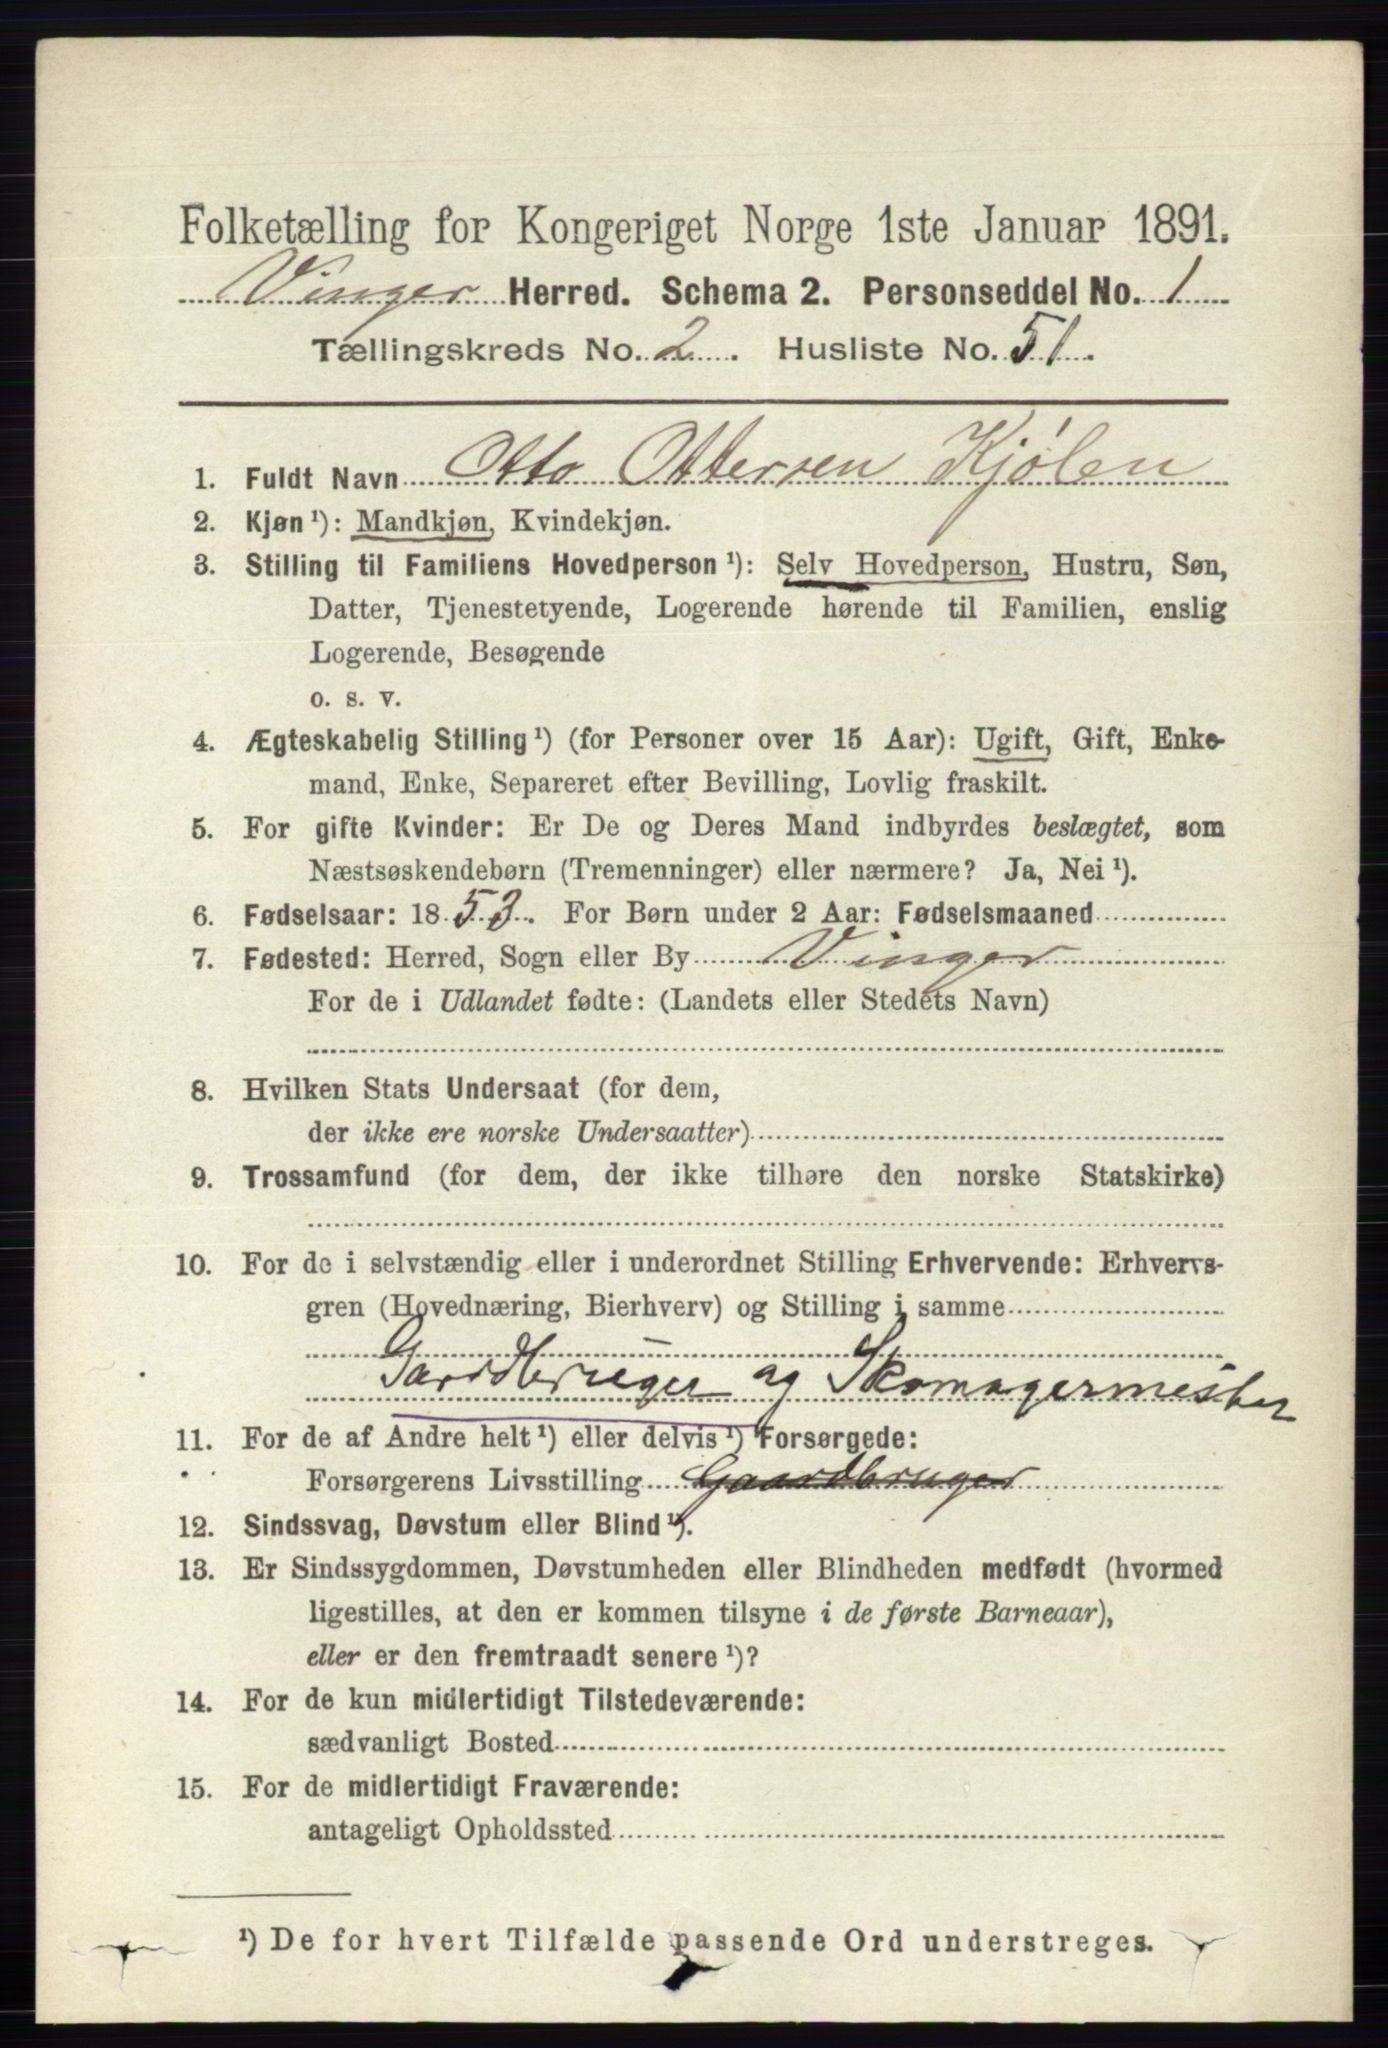 Folketælling for Kongeriget Norge 1ste Januar 1891.
Vinger Herred. Schema 2. Personseddel No. 1
Tællingskreds No. 2. Husliste No. 51.
1. Fuldt Navn Otto Ottersen Kjølen
2. Kjøn ¹): Mandkjøn, Kvindekjøn.
3. Stilling til Familiens Hovedperson ¹): Selv Hovedperson, Hustru, Søn,
Datter, Tjenestetyende, Logerende hørende til Familien, enslig
Logerende, Besøgende
o. s. v.
4. Ægteskabelig Stilling ¹) (for Personer over 15 Aar): Ugift, Gift, Enke-
mand, Enke, Separeret efter Bevilling, Lovlig fraskilt.
5. For gifte Kvinder: Er De og Deres Mand indbyrdes beslægtet, som
Næstsøskendebørn (Tremenninger) eller nærmere? Ja, Nei ¹).
6. Fødselsaar: 1853. For Børn under 2 Aar: Fødselsmaaned
7. Fødested: Herred, Sogn eller By Vinger
For de i Udlandet fødte: (Landets eller Stedets Navn)
8. Hvilken Stats Undersaat (for dem,
der ikke ere norske Undersaatter)
9. Trossamfund (for dem, der ikke tilhøre den norske Statskirke)
10. For de i selvstændig eller i underordnet Stilling Erhvervende: Erhvervs-
gren (Hovednæring, Bierhverv) og Stilling i samme
Gardbruger og Skomagermester
11. For de af Andre helt ¹) eller delvis ¹) Forsørgede:
Forsørgerens Livsstilling Gaardbruger
12. Sindssvag, Døvstum eller Blind ¹).
13. Er Sindssygdommen, Døvstumheden eller Blindheden medfødt (hvormed
ligestilles, at den er kommen tilsyne i de første Barneaar),
eller er den fremtraadt senere ¹)?
14. For de kun midlertidigt Tilstedeværende:
sædvanligt Bosted
15. For de midlertidigt Fraværende:
antageligt Opholdssted
¹) De for hvert Tilfælde passende Ord understreges.